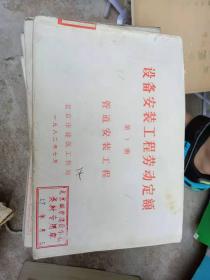 设备安装工程劳动定额
第1册
管道安装工程
北京市建筑工程局
一九八二年七月